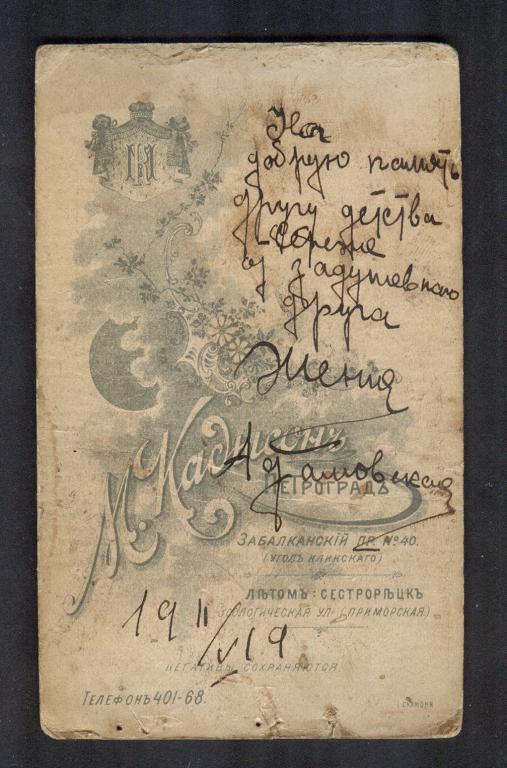 На
добрую память
другу детства
Сереже
от задушевного
друга
Женя
Адамовская
М. Кадысонъ
ПЕТРОГРАДЪ
ЗАБАЛКАНСКІЙ ПР. №40.
(УГОЛЪ КЛИНСКАГО)
ЛѢТОМЪ: СЕСТРОРѢЦКЪ
ЗООЛОГИЧЕСКАЯ УЛ. (ПРИМОРСКАЯ.)
19 11/VI 19
НЕГАТИВЫ СОХРАНЯЮТСЯ.
ТЕЛЕФОНЪ 401-68.